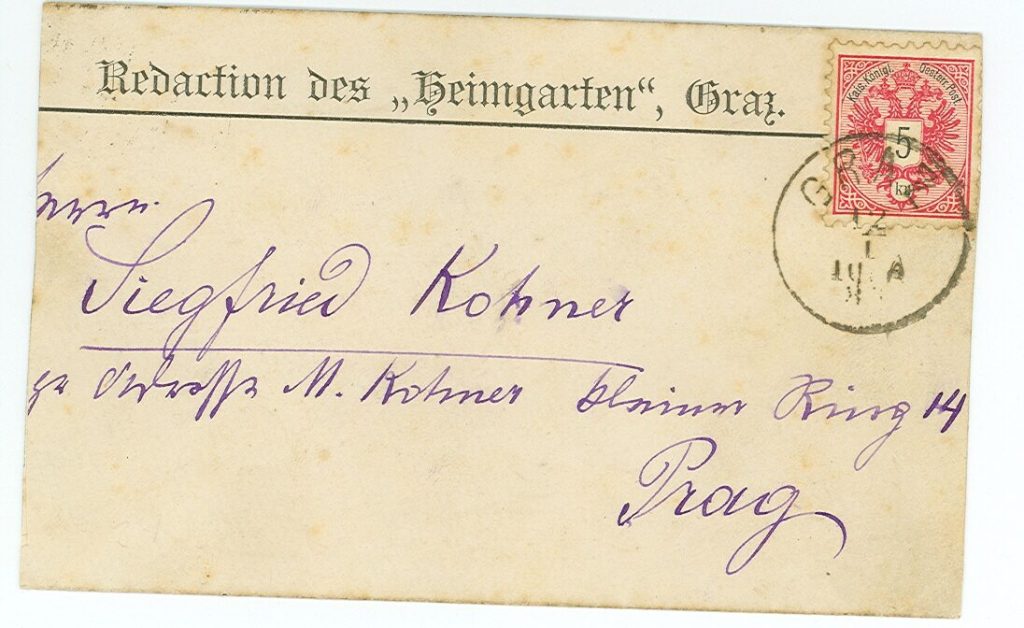 Redaction des „Heimgarten“, Graz.
Kais. Königl. Oesterr. Post.
5
kr
GRATZ
12
1
10 A
Herrn
Siegfried Kohner
Adresse M. Kohner Kleiner Ring 14
Prag